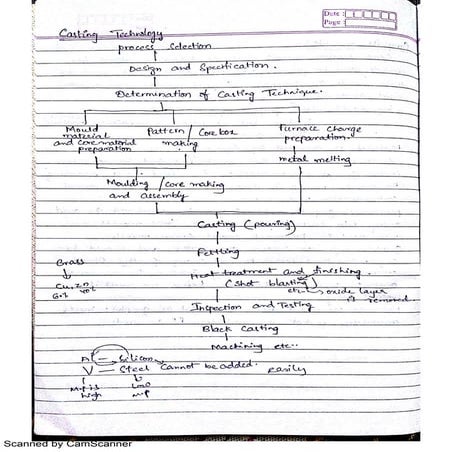 Date :
Page :
Casting Technology
process selection
Design and Specification.
Determination of Casting Technique.
Mould material and core material preparation
Pattern / Core box making
Furnace charge preparation.
metal melting
Moulding / core making and assembly
Casting (pouring)
Fettling
Heat treatment and finishing.
(Shot blasting) etc → oxide layer is removed
Inspection and Testing
Black Casting
Machining etc..
Brass
Cu, Zn
Al — Silicon
V — Steel cannot be added easily
M.pt is high
Low M.P
Scanned by CamScanner